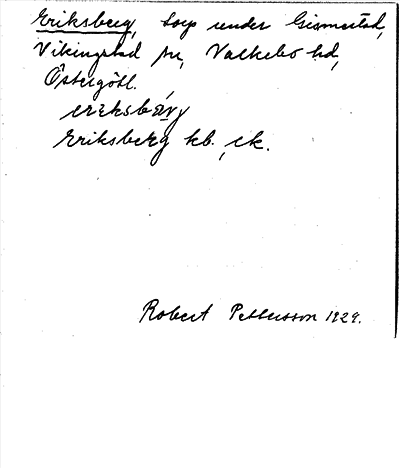 Eriksberg, torp under Gismestad,
Vikingstad sn, Valkebo hd,
Östergötl.
Eriksberg kb., ek.
Robert Pettersson 1929.